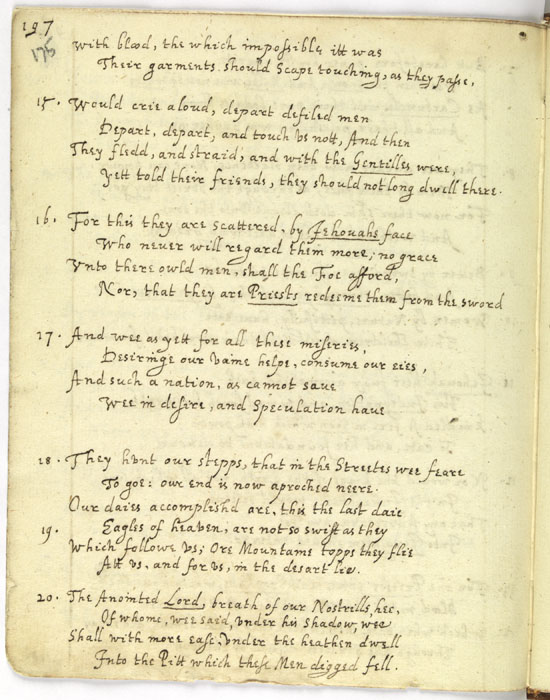 197
175
with blood, the which impossible itt was
Their garments should scape touching, as they passe,
15. Would crie aloud, depart defiled men
Depart, depart, and touch vs nott, And then
They fledd, and straid, and with the Gentilles were,
Yett told their friends, they should not long dwell there.
16. For this they are scattered, by Jehovahs face
Who never will regard them more; no grace
Vnto there owld men, shall the Foe afford,
Nor, that they are Priests redeeme them from the sword
17. And wee as yett for all these miseries,
Desiringe our vaine helpe, consume our eies,
And such a nation, as cannot saue
Wee in desire, and Speculation haue
18. They hvnt our stepps, that in the Streetes wee feare
To goe: our end is now aproched neere.
Our daies accomplishd are, this the last daie
19. Eagles of heaven, are not so swift as they
Which followe vs; Ore Mountaine topps they flie
Att vs, and for vs, in the desart lie.
20. The Anointed Lord, breath of our Nostrills, hee,
Of whome, wee said, vnder his Shadow, wee
Shall with more ease, vnder the heathen dwell
Into the Pitt which these Men digged fell.